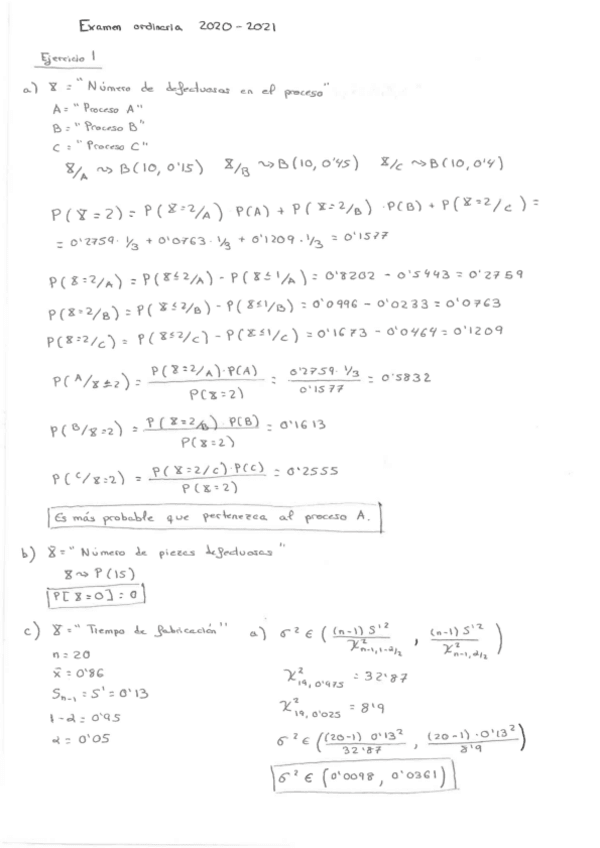 Examen ordinaria 2020-2021
Ejercicio 1
a) X = "Número de defectuosas en el proceso"
A = "Proceso A"
B = "Proceso B"
C = "Proceso C"
X/A ~> B(10, 0'15) X/B ~> B(10, 0'45) X/C ~> B(10, 0'4)
P(X=2) = P(X=2/A)·P(A) + P(X=2/B)·P(B) + P(X=2/C) =
= 0'2759·1/3 + 0'0763·1/3 + 0'1209·1/3 = 0'1577
P(X=2/A) = P(X≤2/A) - P(X≤1/A) = 0'8202 - 0'5443 = 0'2759
P(X=2/B) = P(X≤2/B) - P(X≤1/B) = 0'0996 - 0'0233 = 0'0763
P(X=2/C) = P(X≤2/C) - P(X≤1/C) = 0'1673 - 0'0464 = 0'1209
P(A/X=2) = P(X=2/A)·P(A) / P(X=2) = 0'2759·1/3 / 0'1577 = 0'5832
P(B/X=2) = P(X=2/B) P(B) / P(X=2) = 0'1613
P(C/X=2) = P(X=2/C)·P(C) / P(X=2) = 0'2555
Es más probable que pertenezca al proceso A.
b) X = "Número de piezas defectuosas"
X ~> P(15)
P[X=0] = 0
c) X = "Tiempo de fabricación" a) σ² ∈ ((n-1) S'² / χ² n-1, 1-α/2 , (n-1) S'² / χ² n-1, α/2)
n = 20
x̄ = 0'86 χ² 19, 0'975 = 32'87
Sn-1 = S' = 0'13 χ² 19, 0'025 = 8'9
1-α = 0'95
α = 0'05 σ² ∈ ((20-1) 0'13² / 32'87 , (20-1)·0'13² / 8'9)
σ² ∈ (0'0098, 0'0361)